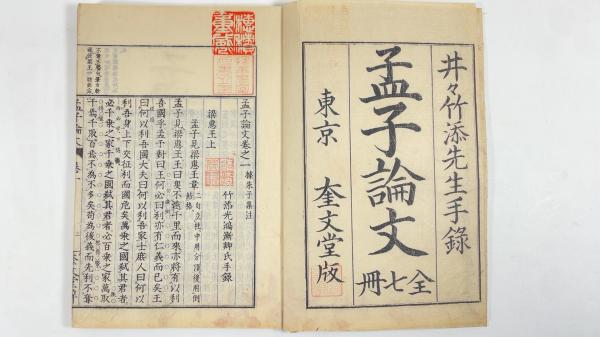 井々竹添先生手錄
孟子論文
全七冊
東京 奎文堂版
孟子論文卷之一 據朱子集注
竹添光鴻漸卿氏手錄
梁惠王上
孟子見梁惠王章
孟子見梁惠王王曰叟不遠千里而來亦將有以利
吾國乎孟子對曰王何必曰利亦有仁義而已矣王
曰何以利吾國大夫曰何以利吾家士庶人曰何以
利吾身上下交征利而國危矣萬乘之國弒其君者
必千乘之家千乘之國弒其君者必百乘之家萬取
千焉千取百焉不為不多矣苟為後義而先利不奪
孟子論文 卷一